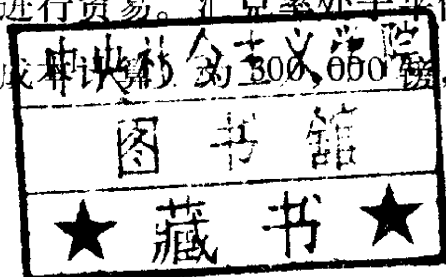 进行贸易。
中央社会主义学院
成本计算）为 300,000 镑，
图 书 館
★ 藏 书 ★